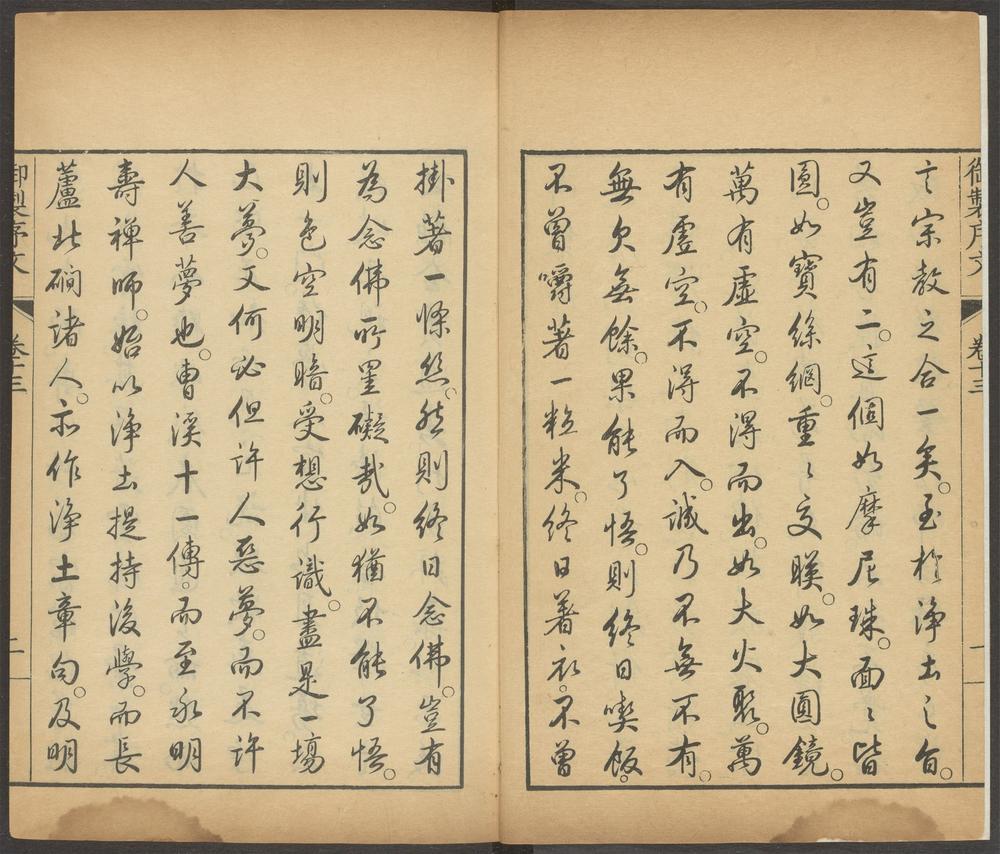 御製序文 卷十三 一
言宗教之合一矣。至於淨土之旨。
又豈有二。這個如摩尼珠。面〻皆
圓。如寶絲網。重〻交暎。如大圓鏡。
萬有虛空。不得而出。如大火聚。萬
有虛空。不得而入。誠乃不無不有。
無欠無餘。果能了悟。則終日喫飯。
不曾嚼著一粒米。終日著衣。不曾
掛著一條絲。然則終日念佛。豈有
為念佛所罣礙哉。如猶不能了悟。
則色空明暗。受想行識。盡是一場
大夢。又何必但許人惡夢。而不許
人善夢也。曹溪十一傳。而至永明
壽禪師。始以淨土提持後學。而長
蘆北磵諸人。亦作淨土章句。及明
御製序文 卷十三 二